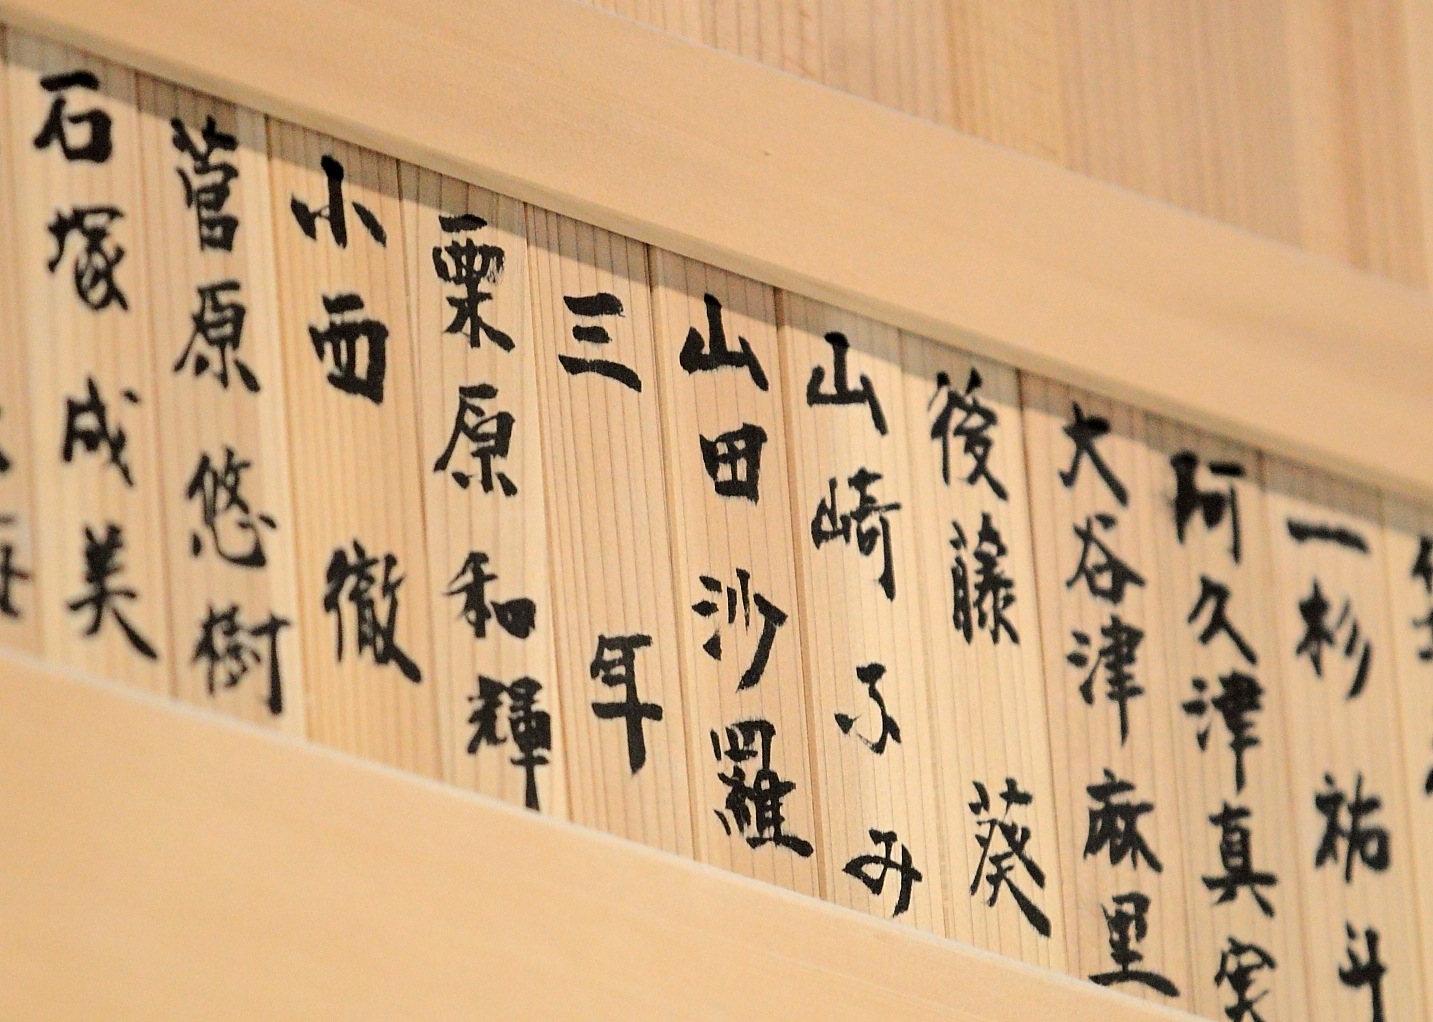 一杉祐斗
阿久津真実
大谷津麻里
後藤葵
山崎ふみ
山田沙羅
三年
栗原和輝
小西徹
菅原悠樹
石塚成美